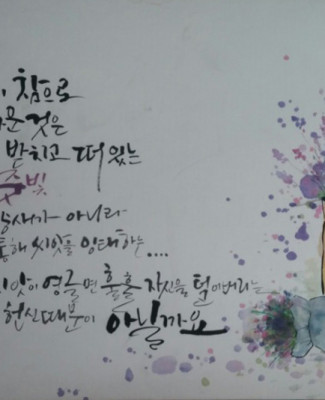 참으로
것은
받치고 떠 있는
꽃빛
향내가 아니라
통해 씨앗을 잉태하는....
씨앗이 영글면 훌훌 자신을 털어버리는
헌신 때문이 아닐까요